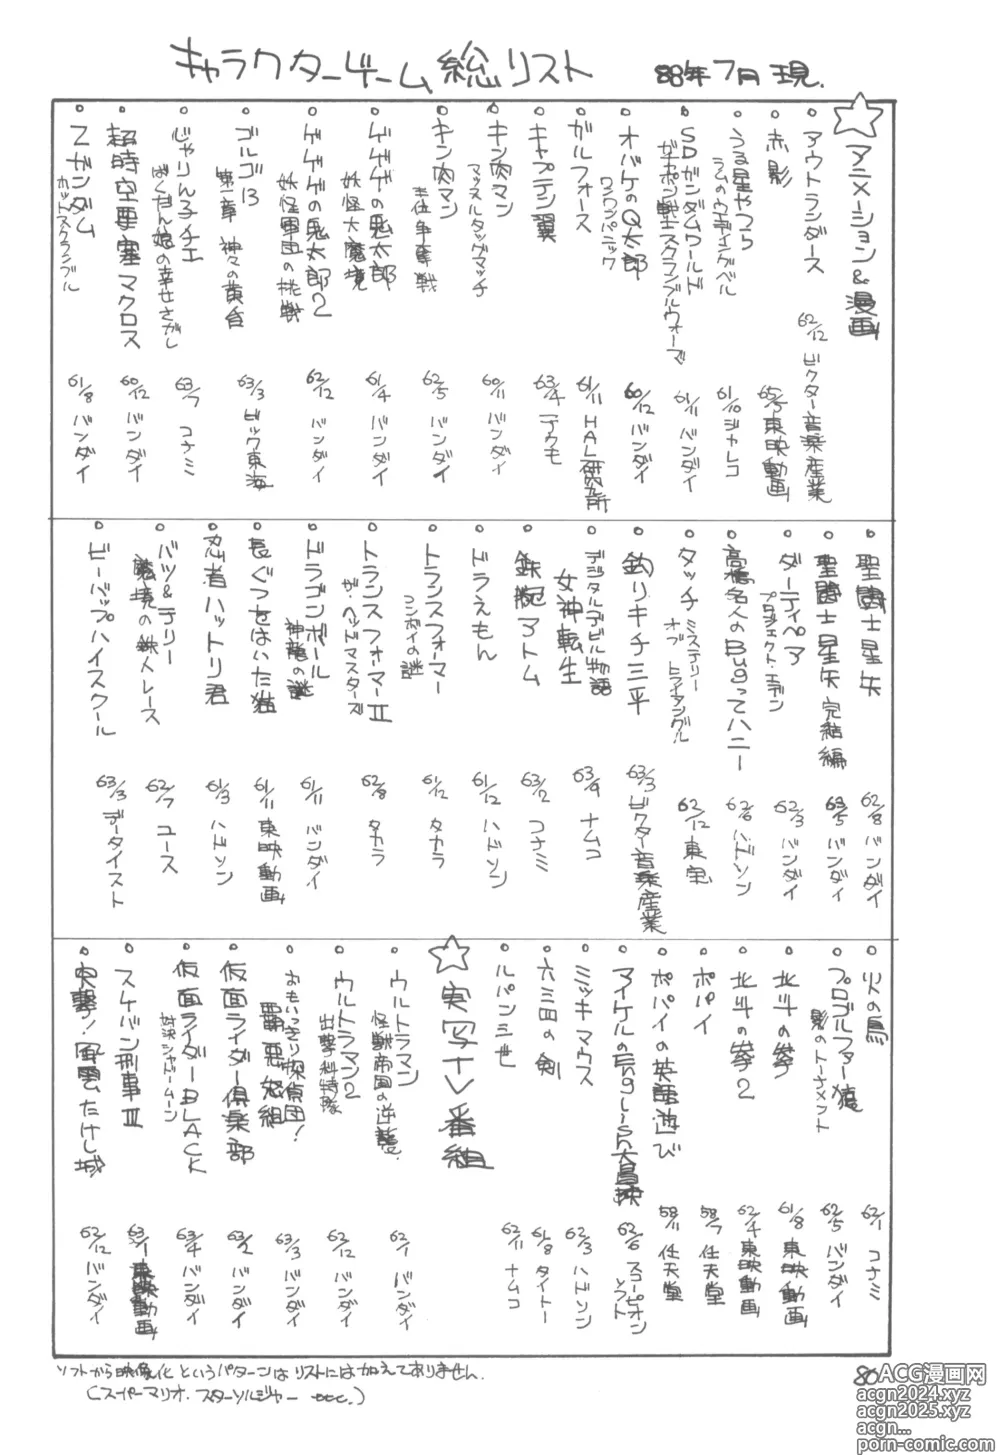 キャラクターゲーム総リスト 88年7月現.
☆アニメーション&漫画
○アウトランダース 62/12 ビクター音楽産業
○赤影 63/5 東映動画
○うる星やつら ラムのウェディングベル 61/10 ジャレコ
○SDガンダムワールド ガチャポン戦士スクランブルウォーズ 61/11 バンダイ
○オバケのQ太郎 ワンワンパニック 60/12 バンダイ
○ガルフォース 61/11 HAL研究所
○キャプテン翼 63/4 テクモ
○キン肉マン マッスルタッグマッチ 60/11 バンダイ
○キン肉マン 王位争奪戦 62/5 バンダイ
○ゲゲゲの鬼太郎 妖怪大魔境 61/4 バンダイ
○ゲゲゲの鬼太郎2 妖怪軍団の挑戦 62/12 バンダイ
○ゴルゴ13 第一章 神々の黄昏 63/3 ビック東海
○じゃりん子チエ ばくだん娘の幸せさがし 63/7 コナミ
○超時空要塞マクロス 60/12 バンダイ
○Zガンダム ホットスクランブル 61/8 バンダイ
○聖闘士星矢 62/8 バンダイ
○聖闘士星矢 完結編 63/5 バンダイ
○ダーティペア プロジェクト・エデン 62/3 バンダイ
○高橋名人のBugってハニー 62/6 ハドソン
○タッチ ミステリーオブトライアングル 62/12 東宝
○釣りキチ三平 63/3 ビクター音楽産業
○デジタルデビル物語 女神転生 63/9 ナムコ
○鉄腕アトム 63/2 コナミ
○ドラえもん 61/12 ハドソン
○トランスフォーマー コンボイの謎 61/12 タカラ
○トランスフォーマーII ザ・ヘッドマスターズ 62/8 タカラ
○ドラゴンボール 神龍の謎 61/11 バンダイ
○長ぐつをはいた猫 61/11 東映動画
○忍者ハットリ君 61/3 ハドソン
○バツ&テリー 魔境の鉄人レース 62/7 ユース
○ビーバップハイスクール 63/3 データイスト
○火の鳥 62/1 コナミ
○プロゴルファー猿 影のトーナメント 62/5 バンダイ
○北斗の拳 61/8 東映動画
○北斗の拳2 62/4 東映動画
○ポパイ 58/7 任天堂
○ポパイの英語遊び 58/11 任天堂
○マイケルのEnglish大冒険 62/6 スコーピオンソフト
○ミッキーマウス 62/3 ハドソン
○六三四の剣 61/8 タイトー
○ルパン三世 62/11 ナムコ
☆実写TV番組
○ウルトラマン 怪獣帝国の逆襲. 62/1 バンダイ
○ウルトラマン2 出撃科特隊 62/12 バンダイ
○おもいっきり探偵団! 覇悪怒組 63/3 バンダイ
○仮面ライダー倶楽部 63/2 バンダイ
○仮面ライダーBLACK 対決シャドームーン 63/4 バンダイ
○スケバン刑事III 63/1 東映動画
○突撃!風雲たけし城 62/12 バンダイ
ソフトから映像化というパターンはリストには加えてありません.
(スーパーマリオ.スターソルジャー etc.)
80
ACG漫画网
acgn2024.xyz
acgn2025.xyz
acgn...
porn-comic.com